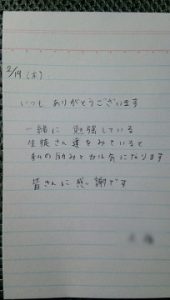 2/19 (木)
いつも ありがとうございます
一緒に 勉強している
生徒さん達をみていると
私の励みと力になります
皆さんに感謝です